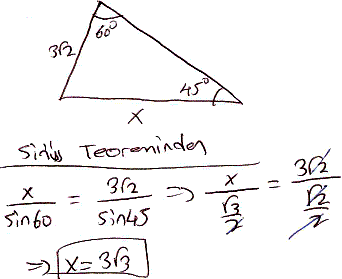 60°
3√2
45°
x
Sinüs Teoreminden
x/sin60 = 3√2/sin45 => x/(√3/2) = 3√2/(√2/2)
=> x=3√3